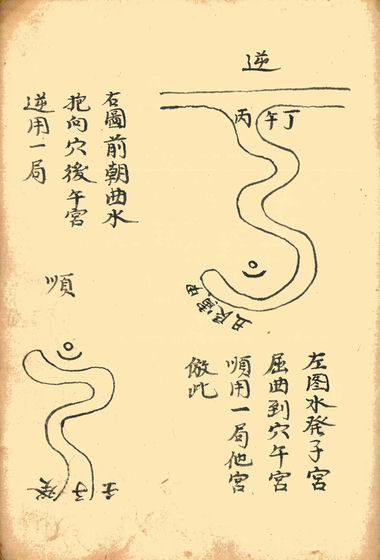 逆
丙午丁
丑艮寅甲
右圖前朝曲水
抱向穴後午宮
逆用一局
左图水發子宮
屈曲到穴午宮
順用一局他宮
倣此
順
壬子癸